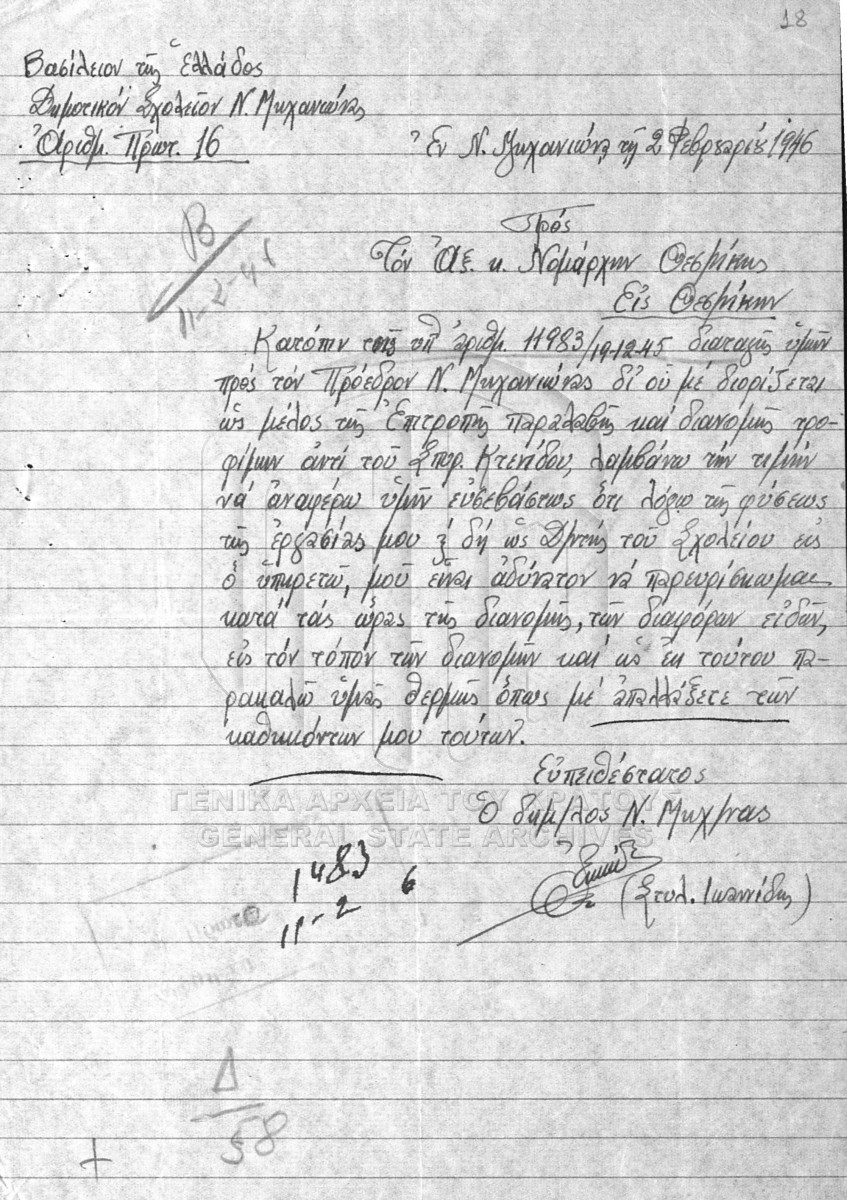 18
Βασίλειον τῆς Ἑλλάδος
Δημοτικόν Σχολεῖον Ν. Μηχανιώνας
Ἀριθμ. Πρωτ. 16
Ἐν Ν. Μηχανιώνᾳ τῇ 2 Φεβρουαρίου 1946
Πρός
Τόν Ἀξ. κ. Νομάρχην Θεσ/νίκης
Εἰς Θεσ/νίκην
Β
11-2-46
Κατόπιν τῆς ὑπ' ἀριθμ. 11983/19-12-45 διαταγῆς ὑμῶν
πρός τόν Πρόεδρον Ν. Μηχανιώνας δι' οὗ μέ διορίζεται
ὡς μέλος τῆς Ἐπιτροπῆς παραλαβῆς καί διανομῆς τρο-
φίμων ἀντί τοῦ Σπυρ. Κτενίδου, λαμβάνω τήν τιμήν
νά ἀναφέρω ὑμῖν εὐσεβάστως ὅτι λόγῳ τῆς φύσεως
τῆς ἐργασίας μου ἤ δή ὡς Δ/ντής τοῦ Σχολείου εἰς
ὅ ὑπηρετῶ, μοῦ εἶναι ἀδύνατον νά παρευρίσκωμαι
κατά τάς ὥρας τῆς διανομῆς, τῶν διαφόρων εἰδῶν,
εἰς τόν τόπόν τῶν διανομῶν καί ὡς ἐκ τούτου πα-
ρακαλῶ ὑμᾶς θερμῶς ὅπως μέ ἀπαλλάξετε τῶν
καθηκόντων μου τούτων.
Εὐπειθέστατος
Ὁ δημ/λος Ν. Μηχ/νας
(Στυλ. Ἰωαννίδης)
1483
11-2 6
ΓΕΝΙΚΑ ΑΡΧΕΙΑ ΤΟΥ ΚΡΑΤΟΥΣ
GENERAL STATE ARCHIVES
Δ
58